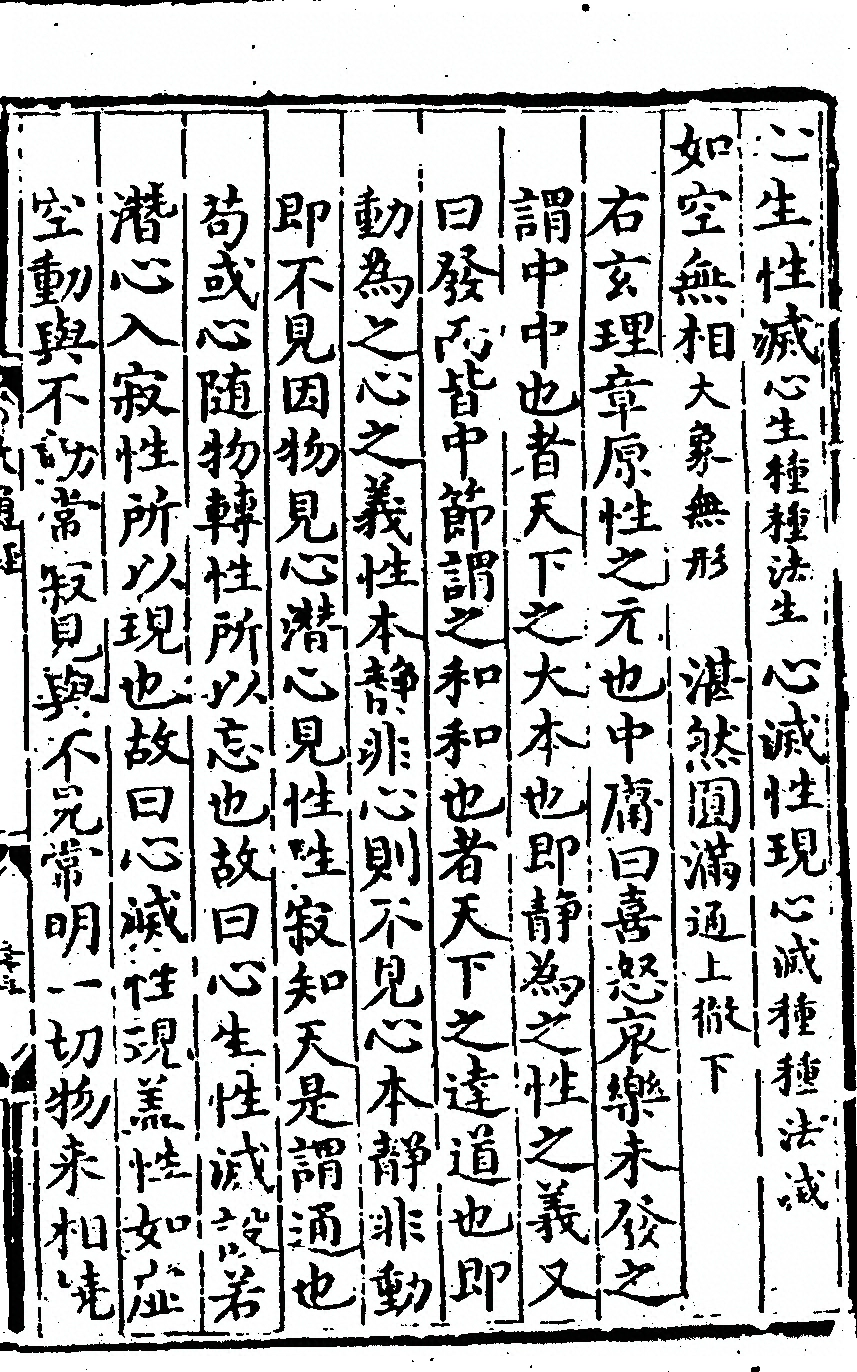 心生性滅心生種種法生心滅性現心滅種種法滅
如空無相大象無形湛然圓滿通上徹下
右玄理章原性之元也中庸曰喜怒哀樂未發之
謂中中也者天下之大本也即靜為之性之義又
曰發而皆中節謂之和和也者天下之達道也即
動為之心之義性本靜非心則不見心本靜非動
即不見因物見心潛心見性性寂知天是謂通也
苟或心随物轉性所以忘也故曰心生性滅設若
潛心入寂性所以現也故曰心滅性現盖性如虛
空動與不動常寂見與不見常明一切物来相撓